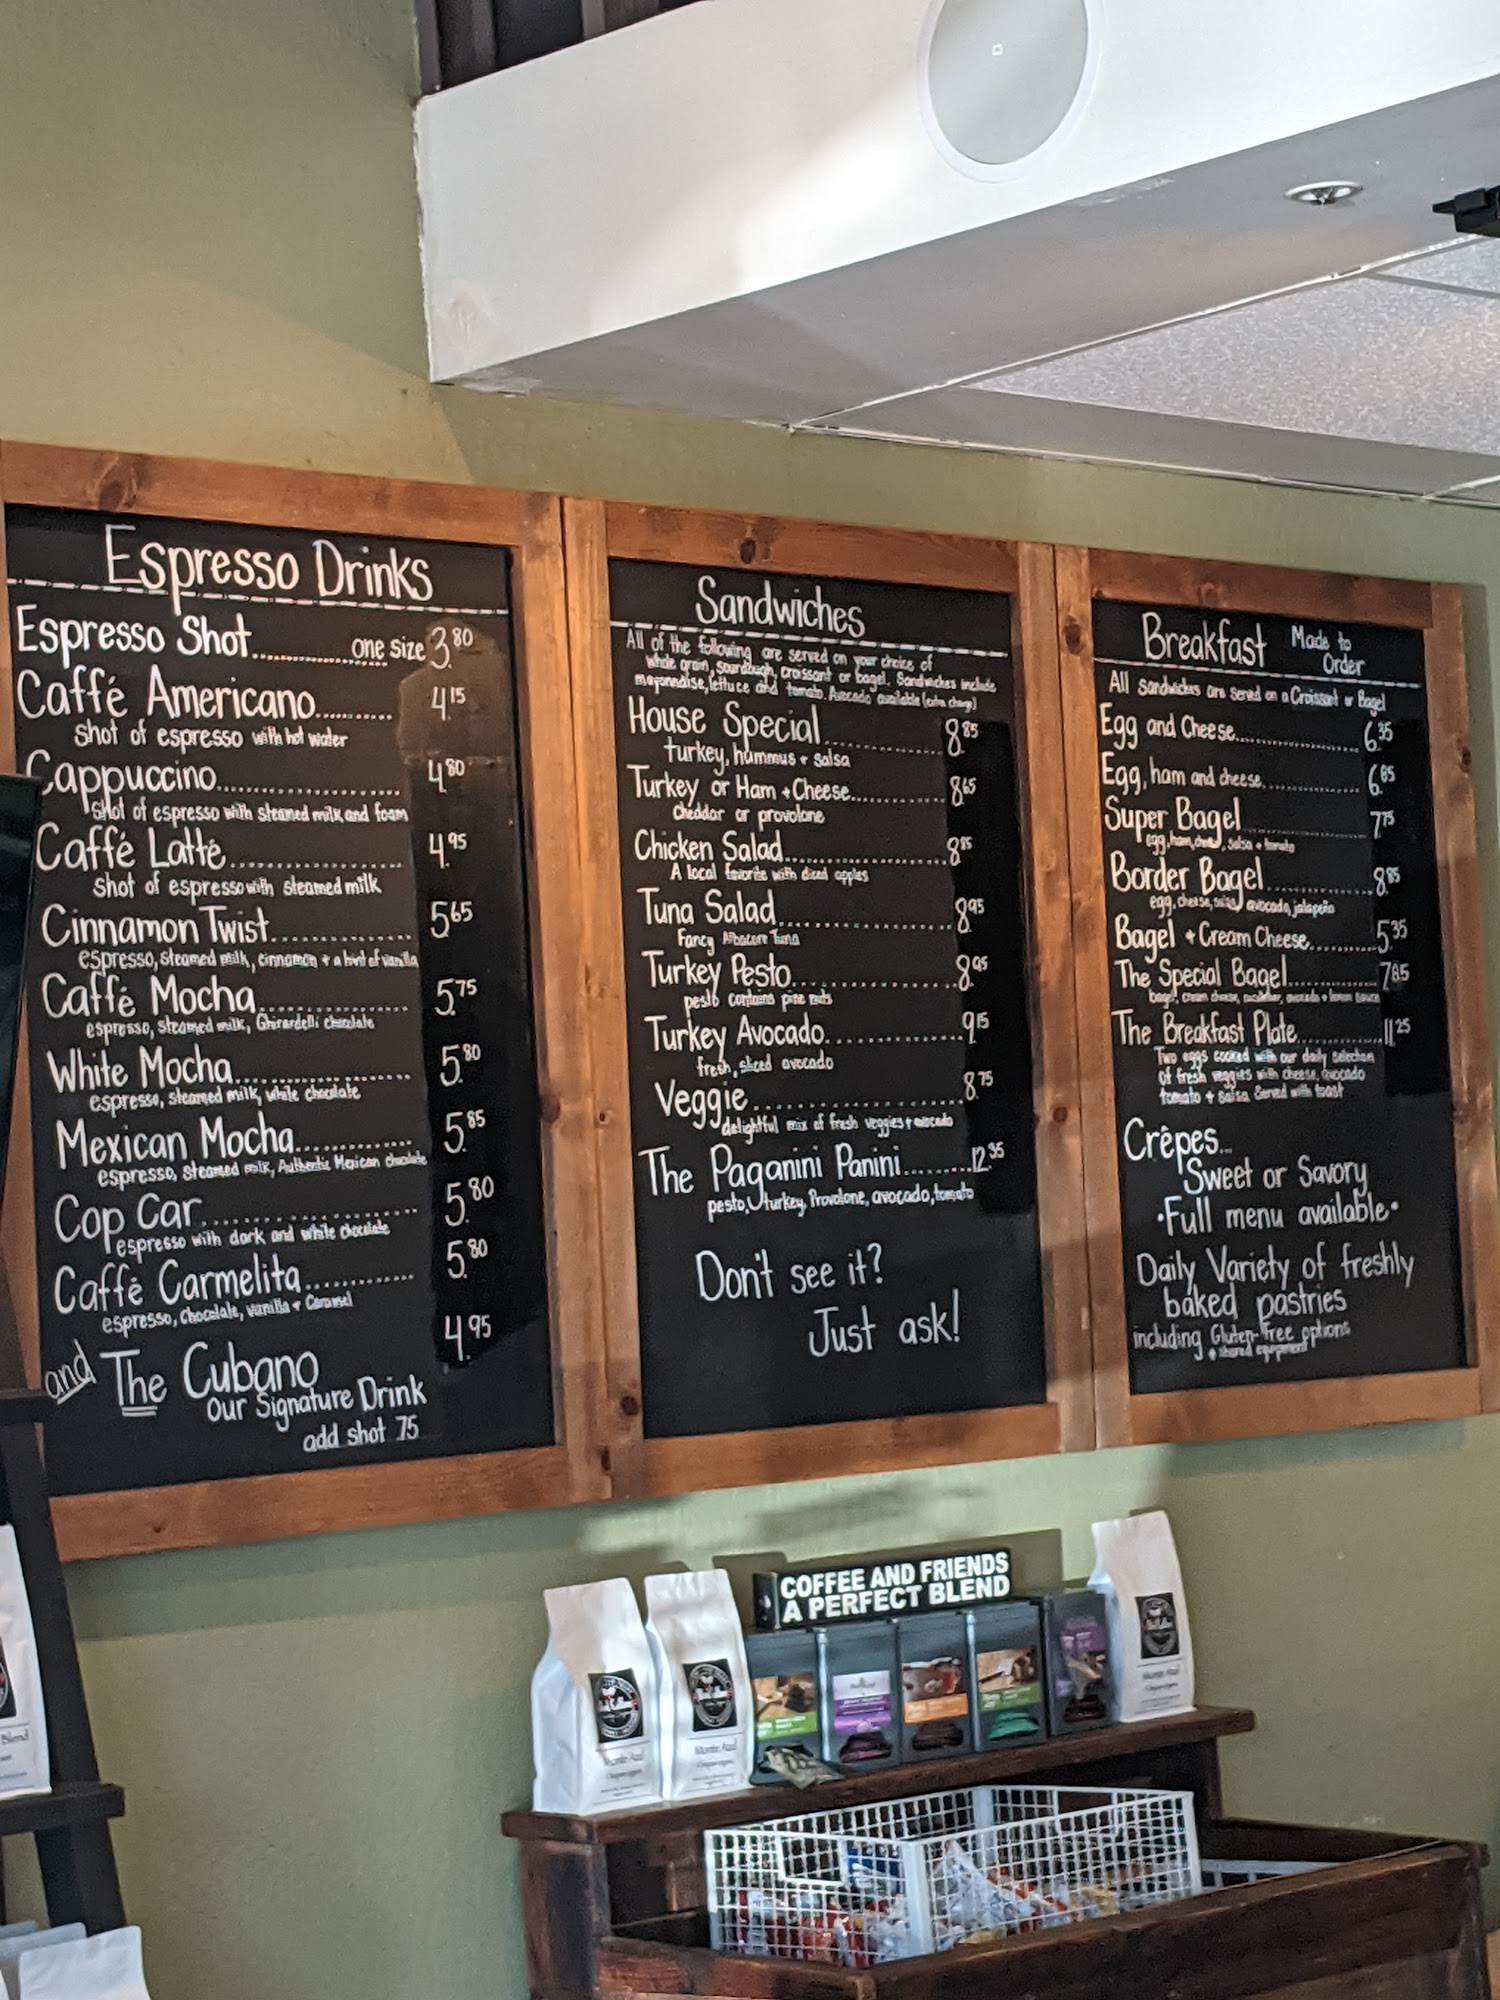 Espresso Drinks
Espresso Shot........ one size 3.80
Caffé Americano........ 4.15
shot of espresso with hot water
Cappuccino........ 4.80
shot of espresso with steamed milk and foam
Caffé Latté........ 4.95
shot of espresso with steamed milk
Cinnamon Twist........ 5.65
espresso, steamed milk, cinnamon + a hint of vanilla
Caffé Mocha........ 5.75
espresso, steamed milk, Ghirardelli chocolate
White Mocha........ 5.80
espresso, steamed milk, white chocolate
Mexican Mocha........ 5.85
espresso, steamed milk, Authentic Mexican chocolate
Cop Car........ 5.80
espresso with dark and white chocolate
Caffé Carmelita........ 5.80
espresso, chocolate, vanilla + Caramel
and The Cubano 4.95
our Signature Drink
add shot 75
Sandwiches
All of the following are served on your choice of
whole grain, sourdough, croissant or bagel. Sandwiches include
mayonnaise, lettuce and tomato. Avocado available (extra charge)
House Special........ 8.85
turkey, hummus + salsa
Turkey or Ham + Cheese........ 8.65
cheddar or provolone
Chicken Salad........ 8.85
A local favorite with diced apples
Tuna Salad........ 8.95
Fancy Albacore Tuna
Turkey Pesto........ 8.95
pesto contains pine nuts
Turkey Avocado........ 9.15
fresh, sliced avocado
Veggie........ 8.75
delightful mix of fresh veggies + avocado
The Paganini Panini........ 12.35
pesto, turkey, Provolone, avocado, tomato
Don't see it?
Just ask!
Breakfast Made to
Order
All sandwiches are served on a Croissant or Bagel
Egg and Cheese........ 6.35
Egg, ham and cheese........ 6.85
Super Bagel........ 7.75
egg, ham, cheese, salsa + tomato
Border Bagel........ 8.85
egg, cheese, salsa, avocado, jalapeño
Bagel + Cream Cheese........ 5.35
The Special Bagel........ 7.85
bagel, cream cheese, cucumber, avocado + lemon sauce
The Breakfast Plate........ 11.25
Two eggs cooked with our daily selection
of fresh veggies with cheese, avocado
tomato + salsa. Served with toast
Crêpes...
Sweet or Savory
•Full menu available•
Daily Variety of freshly
baked pastries
including Gluten-Free options
+ shared equipment
COFFEE AND FRIENDS
A PERFECT BLEND
Blend